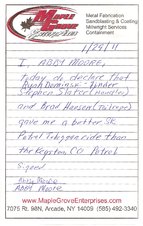 MAPLE
GROVE
Enterprises
Metal Fabrication
Sandblasting & Coating
Minwright Services
Containment
1/29/11
I, ABBY MOORE,
today do declare that
Ryan Dominsk Tender
Stephen Slater (Handler)
and Brad Hansen (Tailrope)
gave me a better SK
Patrol Toboggan ride than
the Keyston CO Patrol
Signed
Abby Moore
ABBY MOORE
www.MapleGroveEnterprises.com
7075 Rt. 98N, Arcade, NY 14009 (585) 492-3340